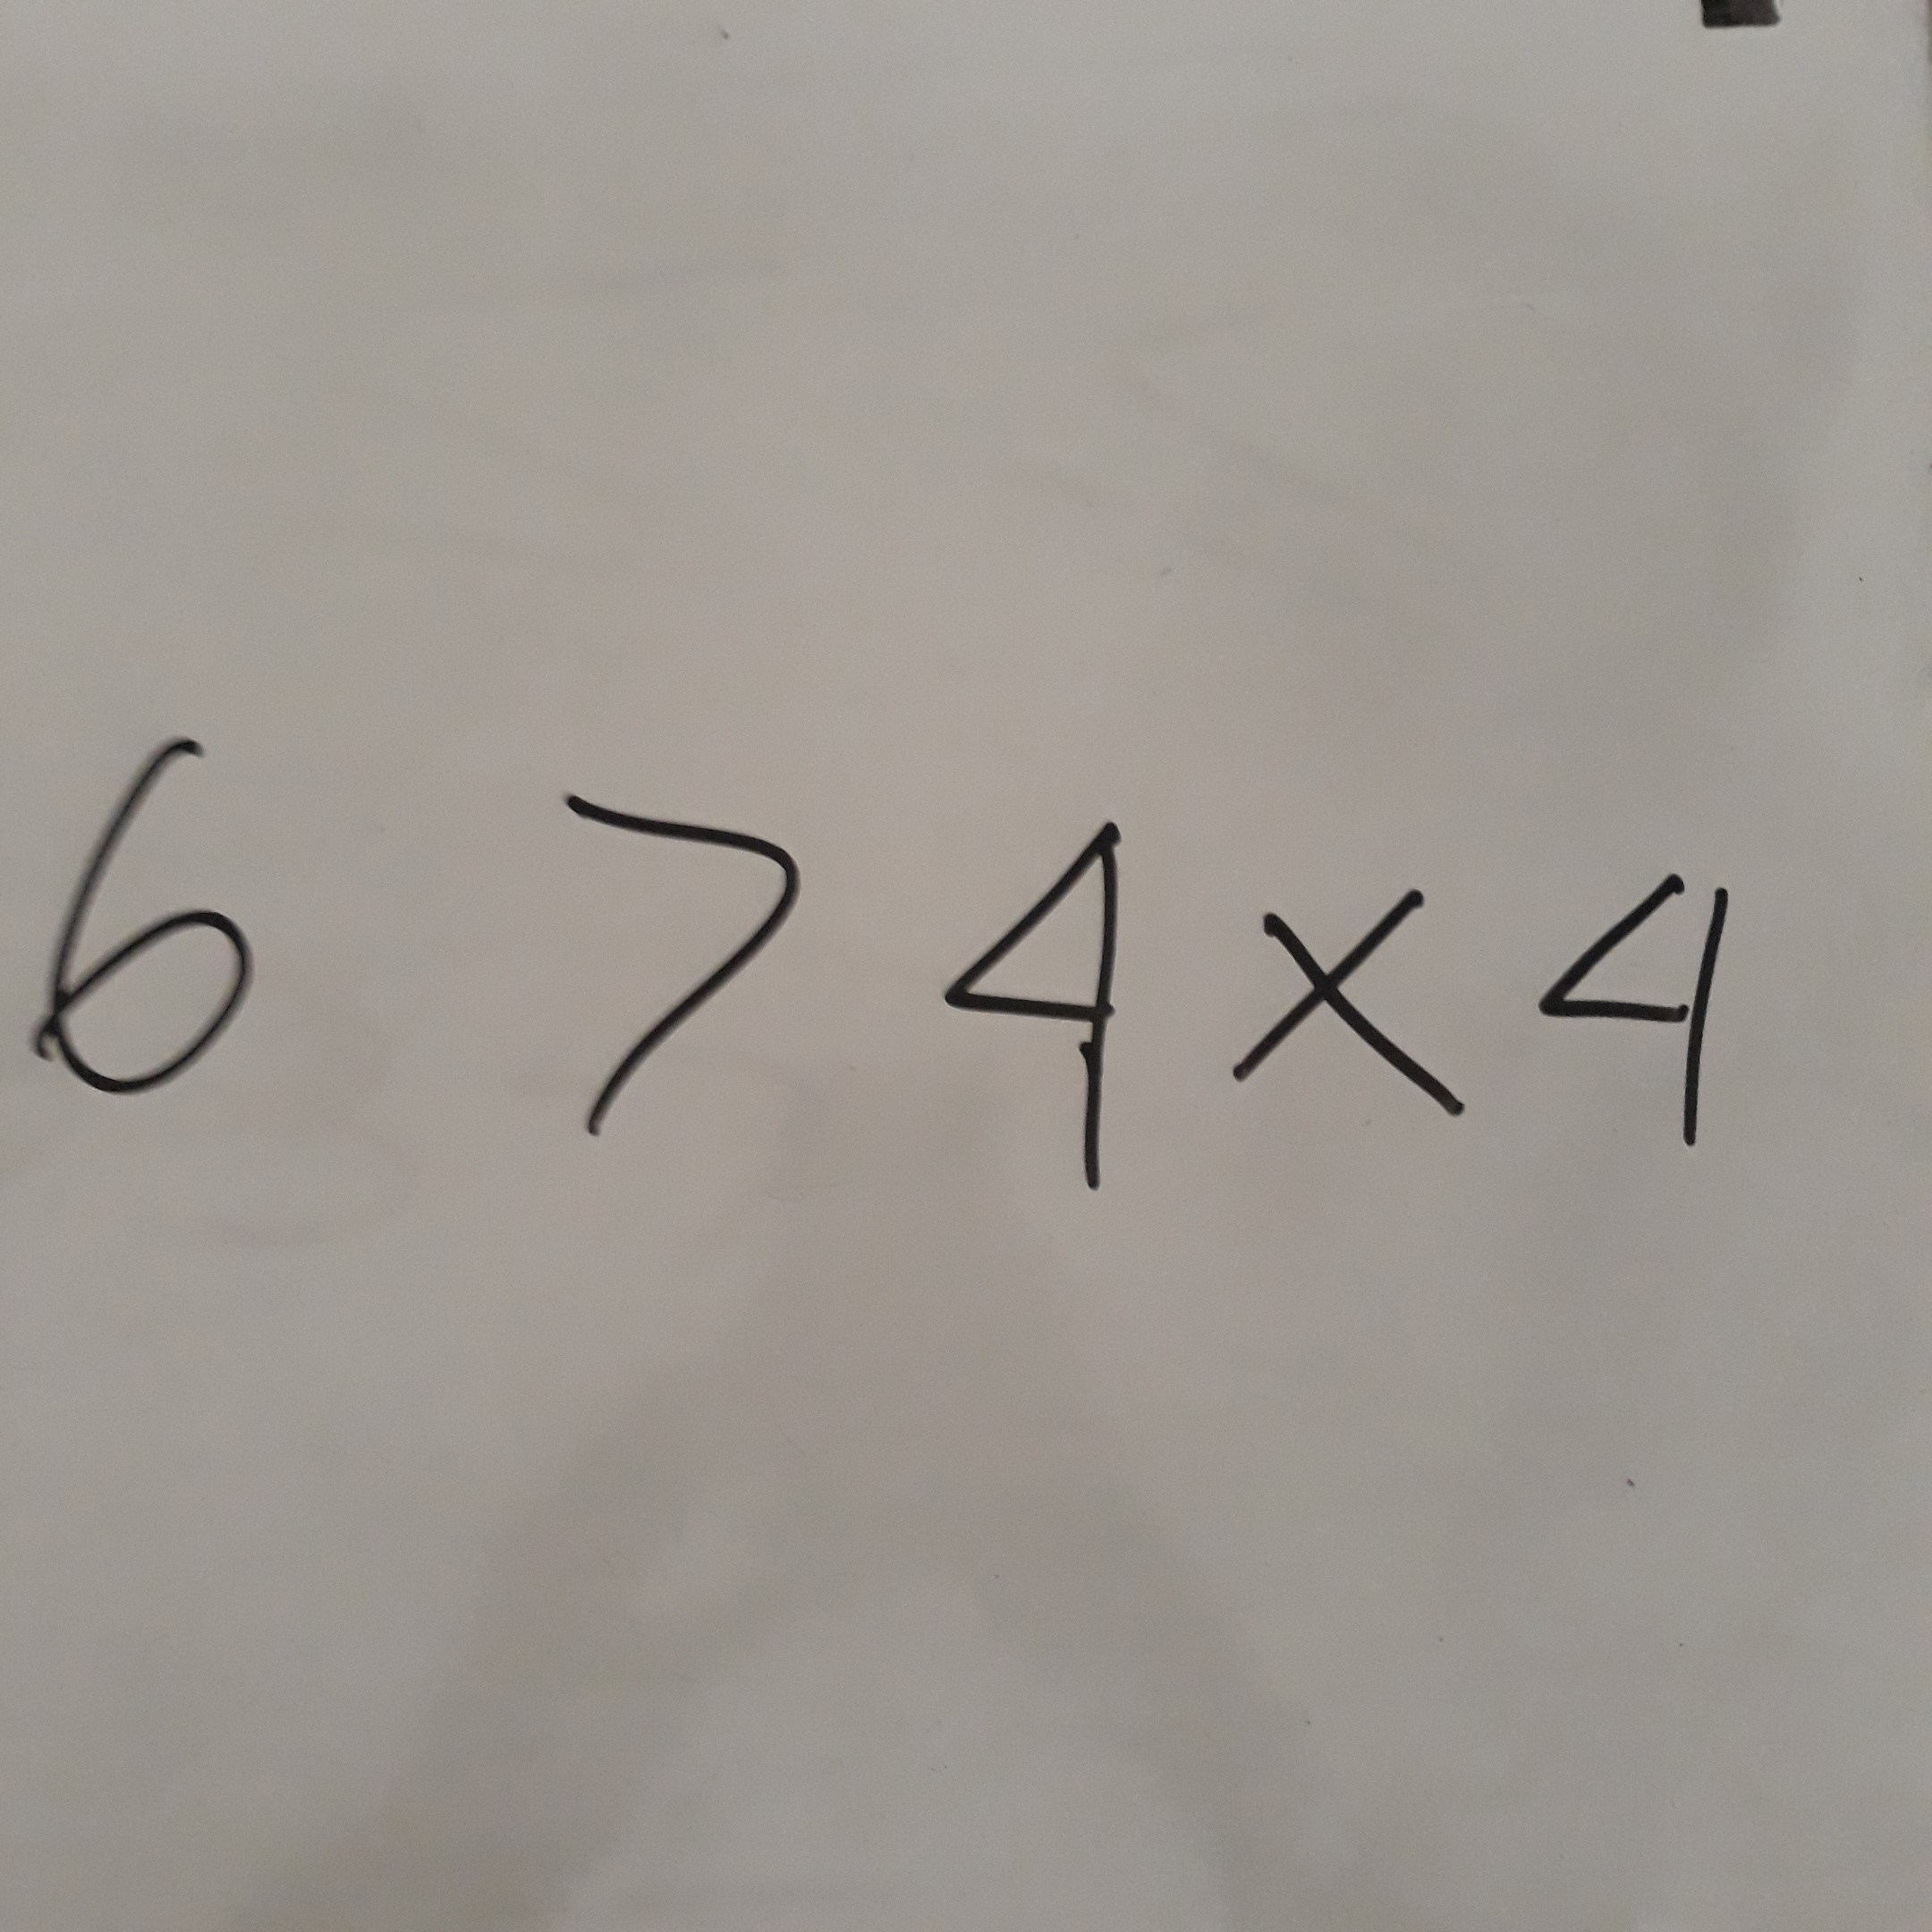 6 7 4 x 4